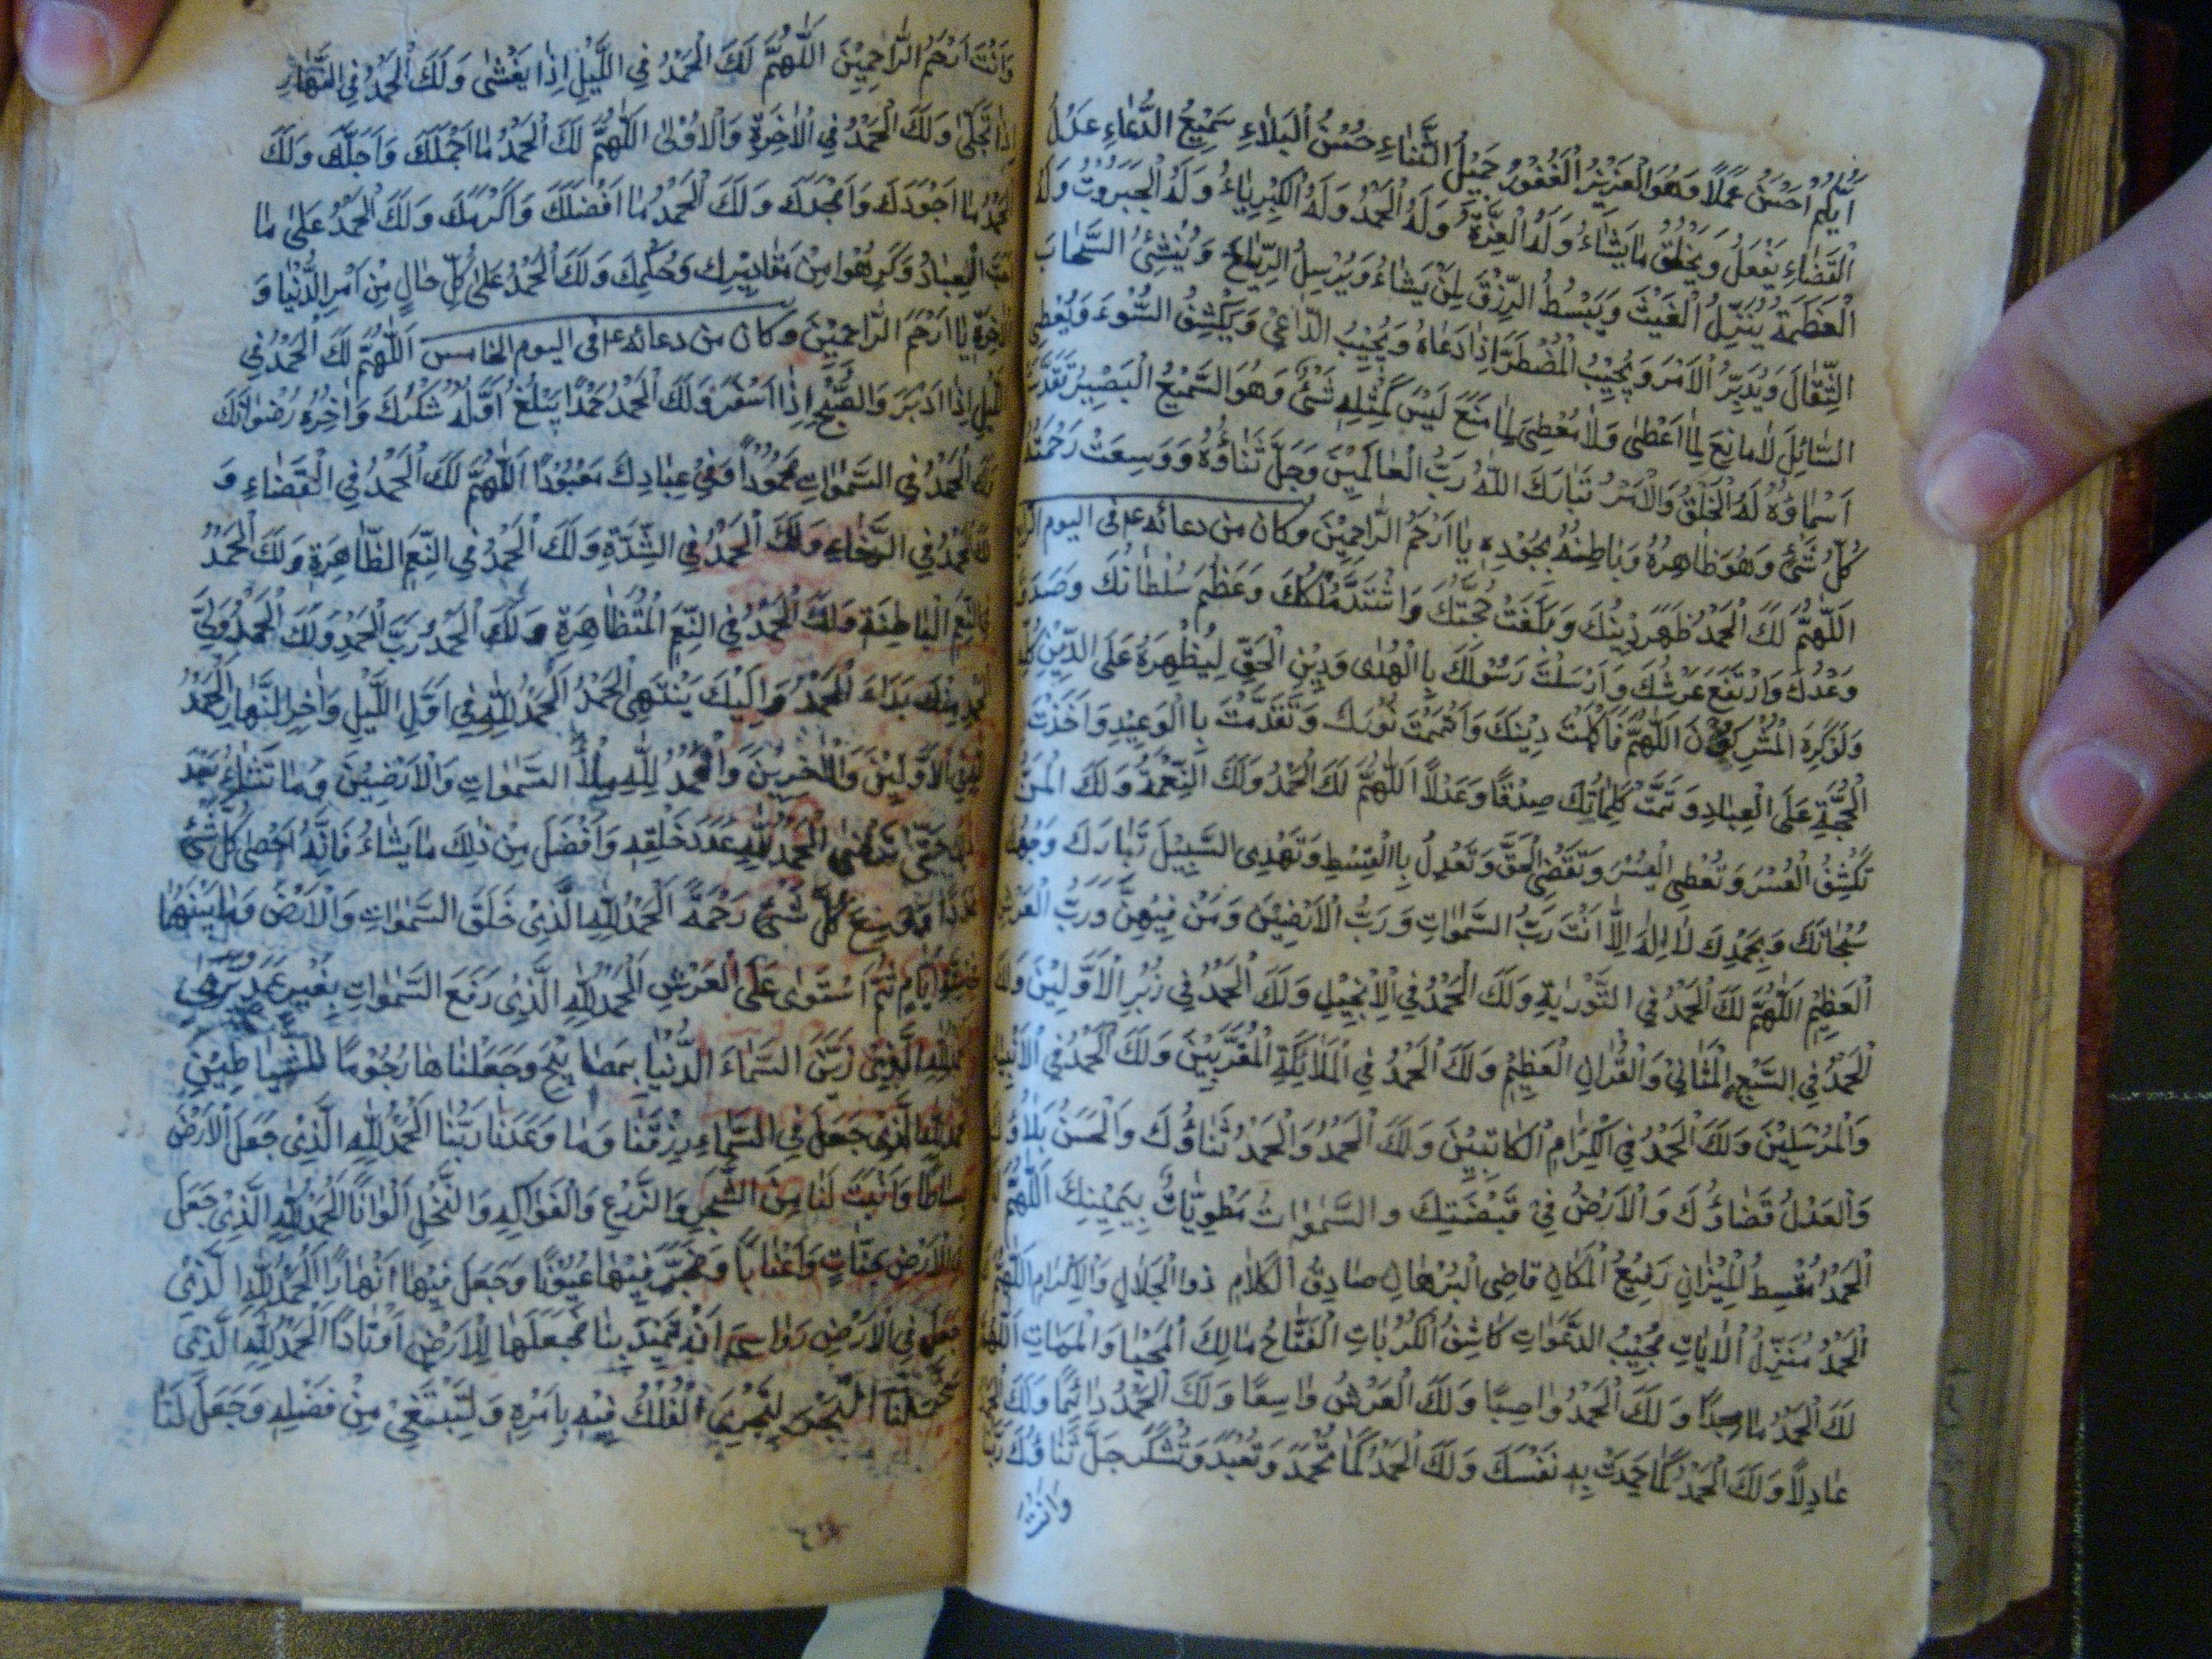 اَيُّكُمْ اَحْسَنُ عَمَلًا وَهُوَ الْعَزِيْزُ الْغَفُوْرُ جَمِيْلُ الثَّنَاءِ حَسَنُ الْبَلَاءِ سَمِيْعُ الدُّعَاءِ عَدْلُ
الْقَضَاءِ يَفْعَلُ وَيَخْلُقُ مَا يَشَاءُ وَلَهُ الْعِزَّةُ وَلَهُ الْحَمْدُ وَلَهُ الْكِبْرِيَاءُ وَلَهُ الْجَبَرُوْتُ وَلَهُ
الْعَظَمَةُ يُنَزِّلُ الْغَيْثَ وَيَبْسُطُ الرِّزْقَ لِمَنْ يَشَاءُ وَيُرْسِلُ الرِّيَاحَ وَيُنْشِئُ السَّحَابَ
الثِّقَالَ وَيُدَبِّرُ الْاَمْرَ وَيُجِيْبُ الْمُضْطَرَّ اِذَا دَعَاهُ وَيُجِيْبُ الدَّاعِيْ وَيَكْشِفُ السُّوْءَ وَيُعْطِي
السَّائِلَ لَا مَانِعَ لِمَا اَعْطٰى وَلَا مُعْطِيَ لِمَا مَنَعَ لَيْسَ كَمِثْلِهِ شَئٌ وَهُوَ السَّمِيْعُ الْبَصِيْرُ تَقَدَّسَتْ
اَسْمَاؤُهُ لَهُ الْخَلْقُ وَالْاَمْرُ تَبَارَكَ اللّٰهُ رَبُّ الْعَالَمِيْنَ وَجَلَّ ثَنَاؤُهُ وَوَسِعَتْ رَحْمَتُهُ
كُلَّ شَئٍ وَهُوَ ظَاهِرُهُ وَبَاطِنُهُ بِجُوْدِهِ يَا اَرْحَمَ الرَّاحِمِيْنَ وكان من دعائه ع فى اليوم
اَللّٰهُمَّ لَكَ الْحَمْدُ ظَهَرَ دِيْنُكَ وَبَلَغَتْ حُجَّتُكَ وَاشْتَدَّ مُلْكُكَ وَعَظُمَ سُلْطَانُكَ وَصَدَقَ
وَعْدُكَ وَارْتَفَعَ عَرْشُكَ وَاَرْسَلْتَ رَسُوْلَكَ بِالْهُدٰى وَدِيْنِ الْحَقِّ لِيُظْهِرَهُ عَلَى الدِّيْنِ كُلِّهِ
وَلَوْ كَرِهَ الْمُشْرِكُوْنَ اَللّٰهُمَّ فَاَكْمَلْتَ دِيْنَكَ وَاَتْمَمْتَ نُوْرَكَ وَتَقَدَّمْتَ بِالْوَعِيْدِ وَاَخَذْتَ
الْحُجَّةَ عَلَى الْعِبَادِ وَتَمَّتْ كَلِمَاتُكَ صِدْقًا وَعَدْلًا اَللّٰهُمَّ لَكَ الْحَمْدُ وَلَكَ النِّعْمَةُ وَلَكَ الْمَنُّ
تَكْشِفُ الْعُسْرَ وَتُعْطِي الْيُسْرَ وَتَقْضِي الْحَقَّ وَتَعْدِلُ بِالْقِسْطِ وَتَهْدِى السَّبِيْلَ تَبَارَكَ وَجْهُكَ
سُبْحَانَكَ وَبِحَمْدِكَ لَا اِلٰهَ اِلَّا اَنْتَ رَبُّ السَّمٰوَاتِ وَرَبُّ الْاَرَضِيْنَ وَمَنْ فِيْهِنَّ وَرَبُّ الْعَرْشِ
الْعَظِيْمِ اَللّٰهُمَّ لَكَ الْحَمْدُ فِي التَّوْرٰيةِ وَلَكَ الْحَمْدُ فِي الْاِنْجِيْلِ وَلَكَ الْحَمْدُ فِي زُبُرِ الْاَوَّلِيْنَ وَلَكَ
الْحَمْدُ فِي السَّبْعِ الْمَثَانِيْ وَالْقُرْاٰنِ الْعَظِيْمِ وَلَكَ الْحَمْدُ فِي الْمَلَائِكَةِ الْمُقَرَّبِيْنَ وَلَكَ الْحَمْدُ فِي الْاَنْبِيَاءِ
وَالْمُرْسَلِيْنَ وَلَكَ الْحَمْدُ فِي الْكِرَامِ الْكَاتِبِيْنَ وَلَكَ الْحَمْدُ وَالْحَمْدُ ثَنَاؤُكَ وَالْحَسَنُ بَلَاؤُكَ
وَالْعَدْلُ قَضَاؤُكَ وَالْاَرْضُ فِيْ قَبْضَتِكَ وَالسَّمٰوَاتُ مَطْوِيَّاتٌ بِيَمِيْنِكَ اَللّٰهُمَّ
الْحَمْدُ مُقْسِطُ الْمِيْزَانِ رَفِيْعُ الْمَكَانِ قَاضِى الْبُرْهَانِ صَادِقُ الْكَلَامِ ذو الْجَلَالِ وَالْاِكْرَامِ
الْحَمْدُ مُنَزِّلُ الْاٰيَاتِ مُجِيْبُ الدَّعَوَاتِ كَاشِفُ الْكُرُبَاتِ الْفَتَّاحُ مَالِكُ الْمَحْيَا وَالْمَمَاتِ
لَكَ الْحَمْدُ وَلَكَ الْحَمْدُ وَاصِبًا وَلَكَ الْعَرْشُ وَاسِعًا وَلَكَ الْحَمْدُ دَائِمًا وَلَكَ الْحَمْدُ
عَادِلًا وَلَكَ الْحَمْدُ كَمَا حَمِدْتَ بِهِ نَفْسَكَ وَلَكَ الْحَمْدُ كَمَا تُحْمَدُ وَتُعْبَدُ وَتُشْكَرُ جَلَّ ثَنَاؤُكَ
وَاَنْتَ
وَاَنْتَ اَرْحَمُ الرَّاحِمِيْنَ اَللّٰهُمَّ لَكَ الْحَمْدُ فِي اللَّيْلِ اِذَا يَغْشٰى وَلَكَ الْحَمْدُ فِي النَّهَارِ
اِذَا تَجَلّٰى وَلَكَ الْحَمْدُ فِي الْاٰخِرَةِ وَالْاُوْلٰى اَللّٰهُمَّ لَكَ الْحَمْدُ مَا اَجْمَلَكَ وَاَجَلَّكَ وَلَكَ
الْحَمْدُ مَا اَجْوَدَكَ وَاَمْجَدَكَ وَلَكَ الْحَمْدُ مَا اَفْضَلَكَ وَاَكْرَمَكَ وَلَكَ الْحَمْدُ عَلٰى مَا
الْعِبَادُ وَكَرِهُوْا مِنْ مَقَادِيْرِكَ وَحُكْمِكَ وَلَكَ الْحَمْدُ عَلٰى كُلِّ حَالٍ مِنْ اَمْرِ الدُّنْيَا وَ
الْاٰخِرَةِ يَا اَرْحَمَ الرَّاحِمِيْنَ وكان من دعائه ع فى اليوم الخامس اَللّٰهُمَّ لَكَ الْحَمْدُ فِي
اللَّيْلِ اِذَا اَدْبَرَ وَالصُّبْحِ اِذَا اَسْفَرَ وَلَكَ الْحَمْدُ حَمْدًا يَبْلُغُ اَوَّلُهُ شُكْرَكَ وَاٰخِرُهُ رِضْوَانَكَ
لَكَ الْحَمْدُ فِي السَّمٰوَاتِ مَحْمُوْدًا وَفِيْ عِبَادِكَ مَعْبُوْدًا اَللّٰهُمَّ لَكَ الْحَمْدُ فِي الْقَضَاءِ وَ
لَكَ الْحَمْدُ فِي الرَّخَاءِ وَلَكَ الْحَمْدُ فِي الشِّدَّةِ وَلَكَ الْحَمْدُ فِي النِّعَمِ الظَّاهِرَةِ وَلَكَ الْحَمْدُ
فِي النِّعَمِ الْبَاطِنَةِ وَلَكَ الْحَمْدُ فِي النِّعَمِ الْمُتَظَاهِرَةِ وَلَكَ الْحَمْدُ رَبَّ الْحَمْدِ وَلَكَ الْحَمْدُ وَلِيَّ
الْحَمْدِ مِنْكَ بَدَاءَ الْحَمْدُ وَاِلَيْكَ يَنْتَهِى الْحَمْدُ اَلْحَمْدُ لِلّٰهِ فِي اَوَّلِ اللَّيْلِ وَاٰخِرِ النَّهَارِ اَلْحَمْدُ
فِي الْاَوَّلِيْنَ وَالْاٰخِرِيْنَ وَالْحَمْدُ لِلّٰهِ مِلْأَ السَّمٰوَاتِ وَالْاَرَضِيْنَ وَمَا تَشَاءُ بَعْدَ
حَتّٰى تَرْضٰى اَلْحَمْدُ لِلّٰهِ عَدَدَ خَلْقِهِ وَاَفْضَلَ مِنْ ذٰلِكَ مَا يَشَاءُ فَاِنَّهُ اَحْصٰى كُلَّ شَئٍ
عَدَدًا وَوَسِعَ كُلَّ شَئٍ رَحْمَةً اَلْحَمْدُ لِلّٰهِ الَّذِيْ خَلَقَ السَّمٰوَاتِ وَالْاَرْضَ وَمَا بَيْنَهُمَا
اَيَّامٍ ثُمَّ اسْتَوٰى عَلَى الْعَرْشِ اَلْحَمْدُ لِلّٰهِ الَّذِيْ رَفَعَ السَّمٰوَاتِ بِغَيْرِ عَمَدٍ
لِلّٰهِ الَّذِيْ زَيَّنَ السَّمَاءَ الدُّنْيَا بِمَصَابِيْحَ وَجَعَلْنَاهَا رُجُوْمًا لِلشَّيَاطِيْنِ
الَّذِيْ جَعَلَ فِي السَّمَاءِ رِزْقَنَا وَمَا وَعَدَنَا رَبُّنَا اَلْحَمْدُ لِلّٰهِ الَّذِيْ جَعَلَ الْاَرْضَ
بِسَاطًا وَاَنْبَتَ لَنَا مِنَ الشَّجَرِ وَالزَّرْعِ وَالْفَوَاكِهِ وَالنَّخْلِ اَلْوَانًا اَلْحَمْدُ لِلّٰهِ الَّذِيْ جَعَلَ
فِي الْاَرْضِ جَنَّاتٍ وَاَعْنَابًا وَفَجَّرَ فِيْهَا عُيُوْنًا وَجَعَلَ فِيْهَا اَنْهَارًا اَلْحَمْدُ لِلّٰهِ الَّذِيْ
جَعَلَ فِي الْاَرْضِ رَوَاسِيَ اَنْ تَمِيْدَ بِنَا فَجَعَلَهَا لِلْاَرْضِ اَوْتَادًا اَلْحَمْدُ لِلّٰهِ الَّذِيْ
الْبَحْرَ لِتَجْرِيَ الْفُلْكُ فِيْهِ بِاَمْرِهِ وَلِنَبْتَغِيَ مِنْ فَضْلِهِ وَجَعَلَ لَنَا